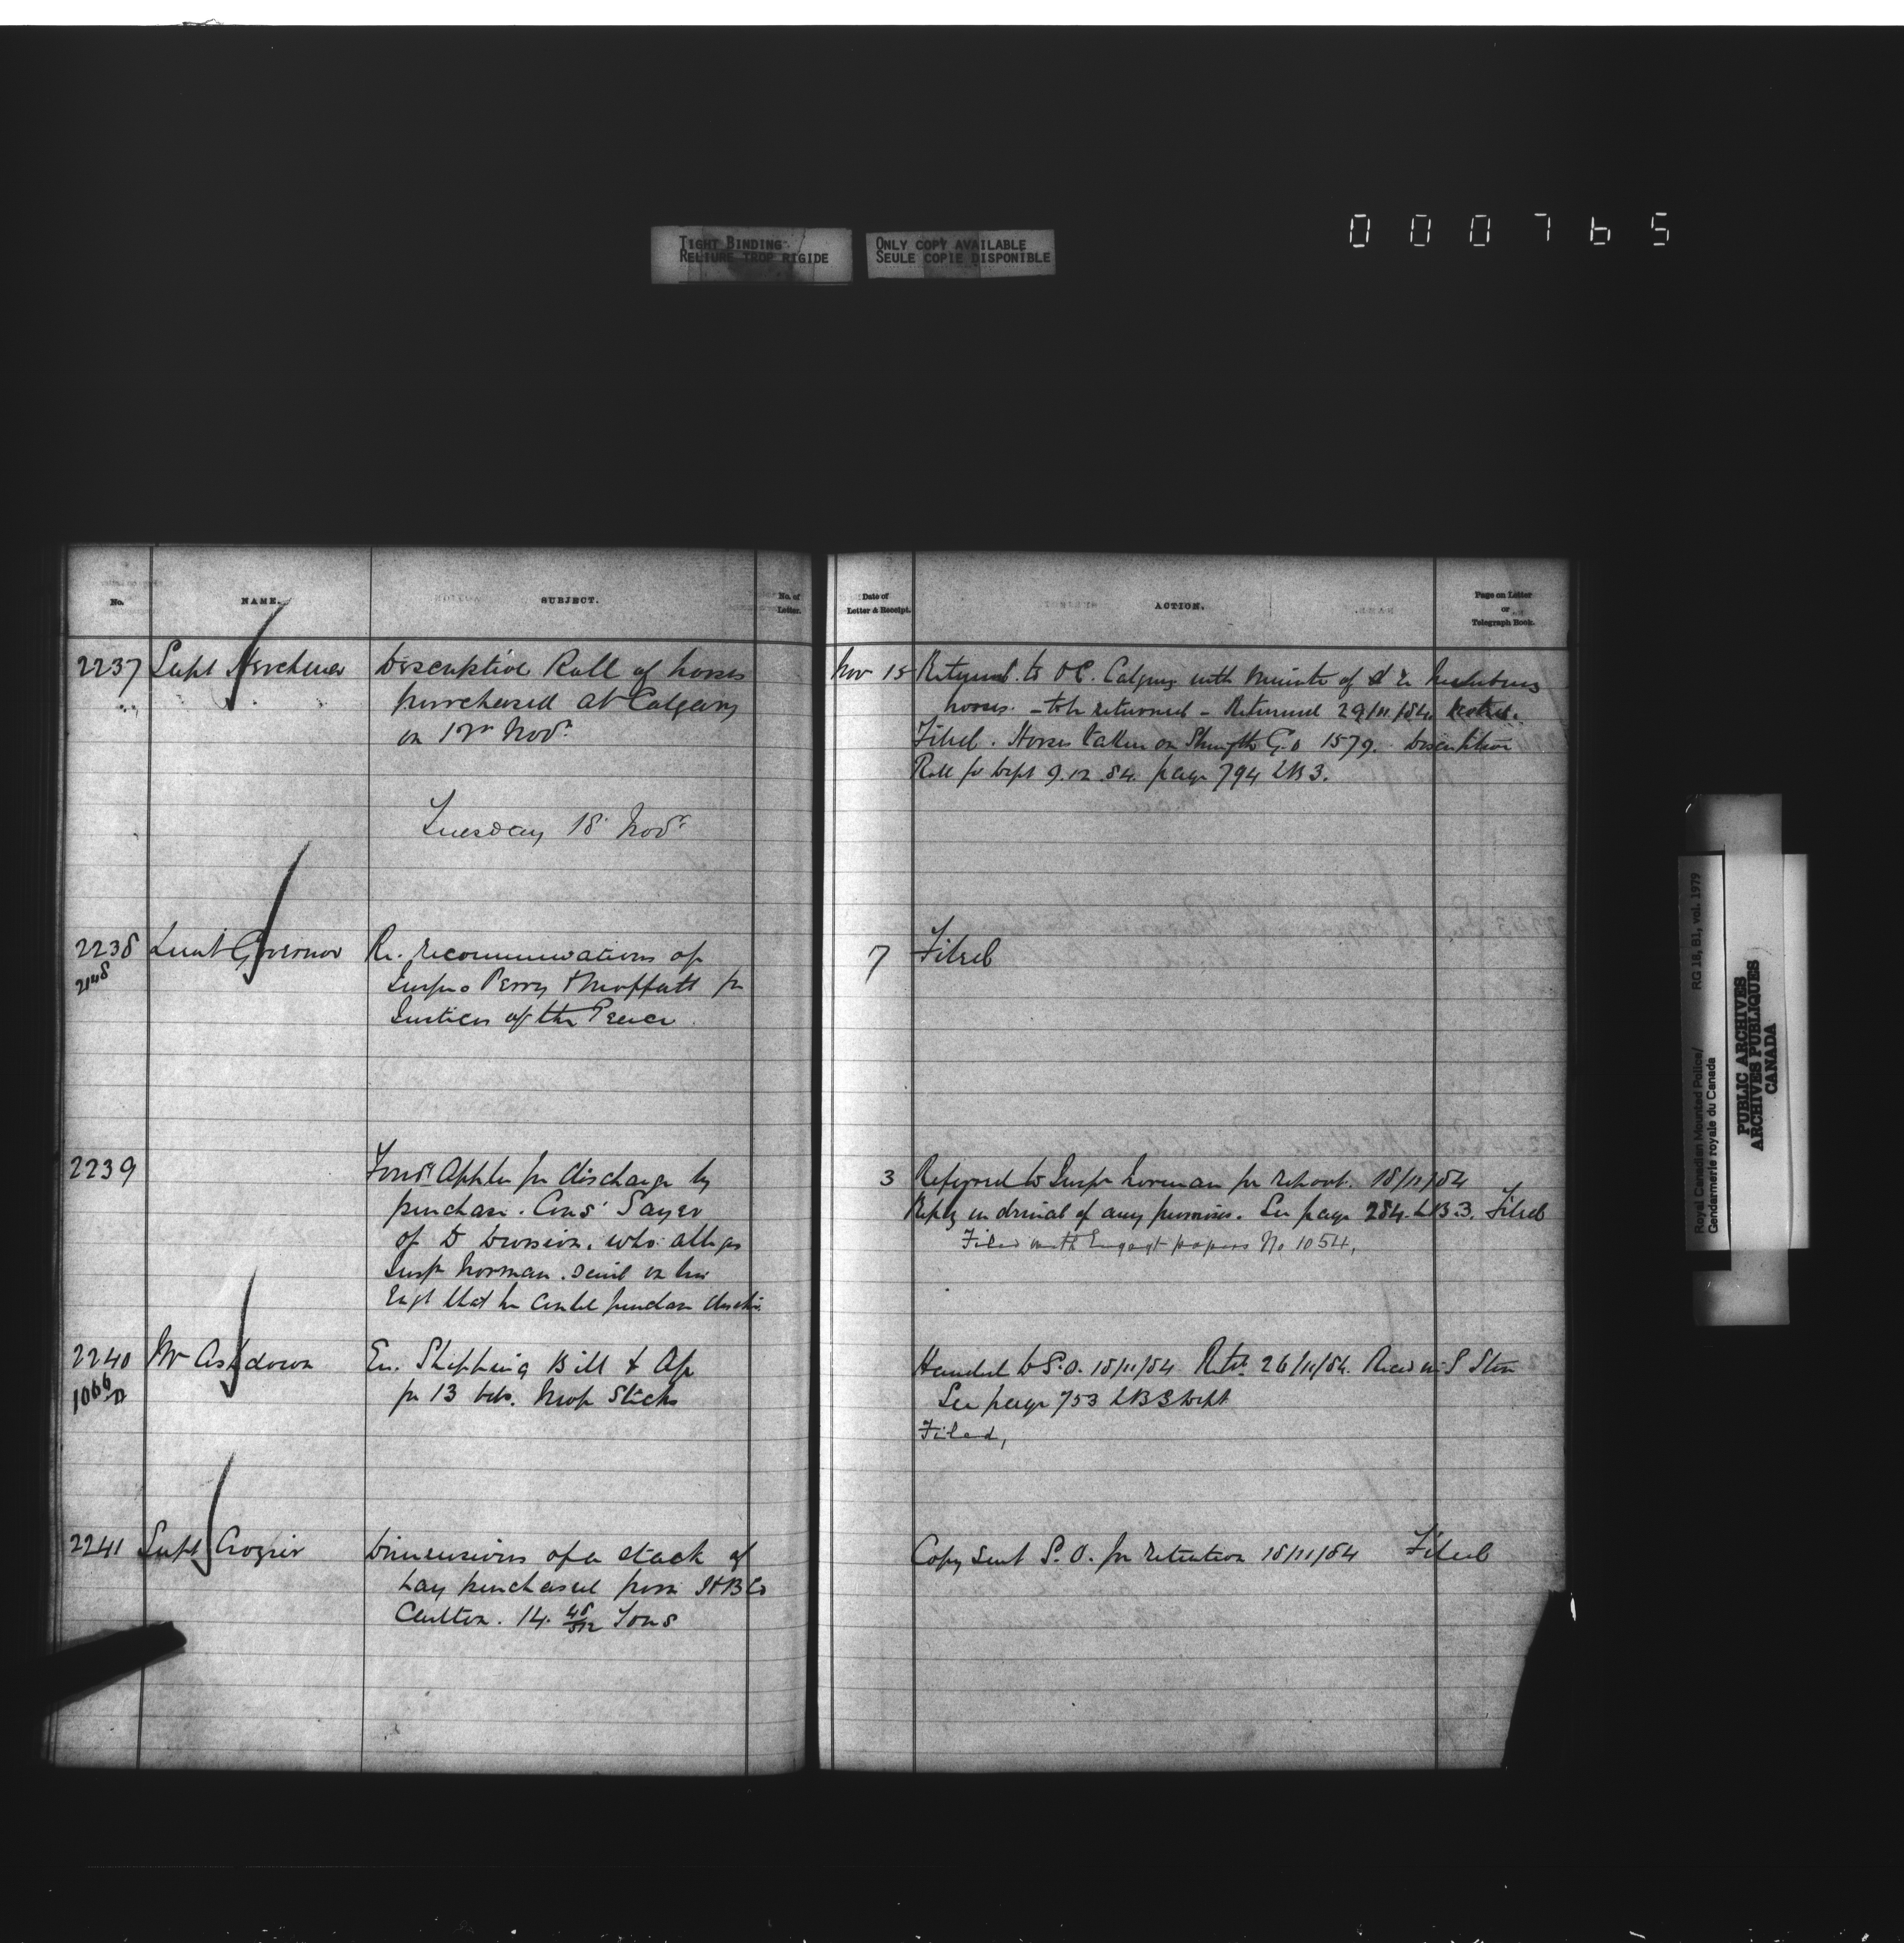 000765
TIGHT BINDING
RELIURE TROP RIGIDE
ONLY COPY AVAILABLE
SEULE COPIE DISPONIBLE
No. NAME. SUBJECT. No. of Letter.
Date of Letter & Receipt. ACTION. Page on Letter or Telegraph Book.
2237 Supt Herchmer Descriptive Roll of horses
purchased at Calgary
on 12th Novr.
Nov 15 Returned to O.C. Calgary with minute of
horses. - to be returned - Returned 29/11/84.
Filed. Horses taken on Strength G.O 1579. Descriptive
Roll for Dept 9.12.84. page 794 LB 3.
Tuesday 18 Novr
2238 Lieut Governor Re. recommendations of
Insprs Perry & Moffatt for
Justices of the Peace.
7 Filed
2239 Forwds Appln for discharge by
purchase. Cons. Sayer
of D Division, who alleges
Inspr Norman said on his
Engt that he could purchase
3 Referred to Inspr Norman for report. 18/11/84
Reply in denial of any promises. See page 284. LB.3. Filed
Filed with Engagt papers No 1054,
2240 Mr Ashdown En. Shipping Bill &
1066
for 13 bds. Mop Sticks
Handed to S.O. 18/11/84 Retd. 26/11/84. Recd in S Store
See page 753 LB 3 Dept
Filed,
2241 Supt Crozier Dimensions of a stack of
hay purchased from HBCo
Carlton. 14. 48/512 Tons
Copy sent S.O. for retention 18/11/84 Filed
Royal Canadian Mounted Police/
Gendarmerie royale du Canada
RG 18, B1, vol. 1979
PUBLIC ARCHIVES
ARCHIVES PUBLIQUES
CANADA